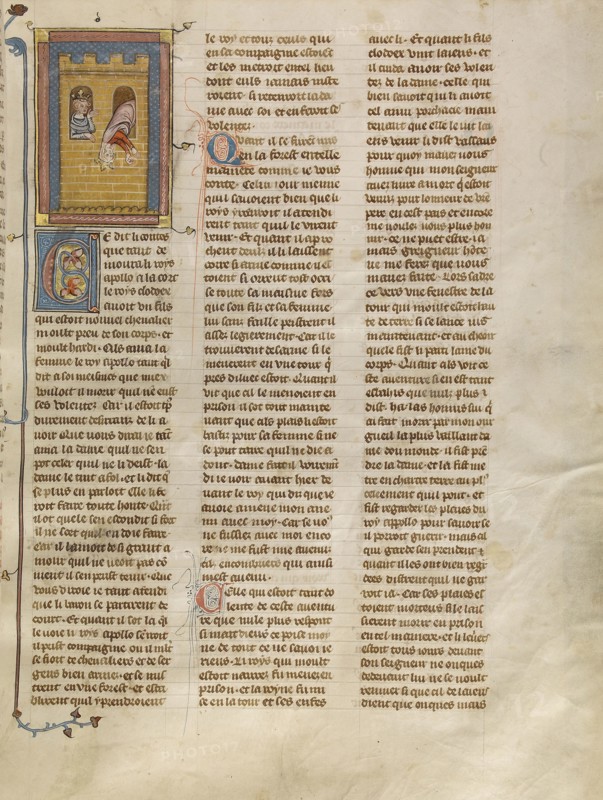 E dit li contes
que tant de
moura li roys
apollo a la cort
le roys clodoex
avoit un fils
qui estoit nouviel chevalier
moult preu de son corps et
moult hardi
femme le roy apollo tant ql
dit a soi meismes que miex
voloit il morir quil ne eust
ses volentez Car il estoit
durement desirans de li a
voir Que vous diroie tant
ama la dame quil ne sen
pot celer quil ne li deist la
dame le tint a fol et li dit q
se plus en parloit elle li fe
roit faire toute honte Qnt
il ot quele sen escondit si fort
il ne sot quel en doie faire
Car il lamoit de si grant a
mour quil ne veoit pas co
ment il sen peust tenir Que
vous diroie ie tant atendi
que li baron se partirent de
court Et quant il sot la
le voie li roys apollo sen
il prist compaignie ou il mist
se fioit de chevaliers et de ser
gens bien armez et se mis
trent en une forest et esta
blirent quil y prendroient
le roy et tous ceuls qui
en sa compaignie estoient
et les metroit en tel lieu
dont euls iamais nistе
roient si retenroit la da
me avec soi et en feroit se
volentez
Quant il se furent mis
en la forest en telle
maniere comme ie vous
conte Celui iour meisme
qui savoient bien que li
roys venroit il atendi
rent tant quil le virent
venir Et quant il apro
chent deuls il laissent
corre si
toient si orrent tost oc
se toute la maisnie fors
que son fils et sa femme
lui sans faille pristrent il
assez legierement Car il le
trouverent desarme si le
menerent en une tour q
pres diluec estoit Quant il
vit que cil le menoient en
prison il sot tout mainte
nant que als plais li estoit
bastiz pour sa femme si ne
se pout taire quil ne die a
donc dame
di ie voir avant hier de
vant le roy qui dit que ie
avoie amene mon ane
mi avec moy Car se vo
ne fussiez avec moi enco
re ne me fust mie avenu
cis encombriers qui ainsi
mest avenu
Celle qui estoit tant do
lente de ceste aventu
re que nule plus respont
si mait diex ce poise moy
ne de tout ce ne savoie ie
riens Li roys qui moult
estoit navrez fu menez en
prison et la royne fu mi
se en la tour et ses enfes
avec li Et quant li fils
clodoex vint laiens et
il cuida avoir ses volen
tez de la dame celle qui
bien savoit qui li avoit
cel anui porchacie main
tenant que elle le vit lai
ens venir li dist vassaus
pour quoy mavez vous
honnie qui mon seigneur
avez livre a mort q estoit
venuz pour lonneur de vre
pere en cest pais et encore
me voulez vous plus hon
nir ce ne puet estre ia
mais greigneur honte
ne me ferez que vous
mavez faite Lors sadre
ce vers une fenestre de la
tour qui moult estoit hau
te de terre si se lance ius
maintenant et au cheoir
quele fist li parti lame du
corps Quant als voit ce
ste aventure si en est tant
esbahis que nulz plus
dist ha las honnis sui q
ai fait morir par mon our
gueil la plus vaillant da
me dou monde il fist pren
dre la dame et la fist me
tre en chartre terre au pl
celeement quil pout et
fist regarder les plaies du
roy appollo pour savoir se
il porroit guerir mais al
qui garde sen prendent
quant il les ont bien regar
dees distrent quil ne gar
roit ia Car ses plaies es
toient mortex si le lais
sierent morir en prison
en tel maniere et li levriers
estoit tous iours devant
son seigneur ne onques
dedevant lui ne se voult
remuer si que cil de laiens
dient que onques mais